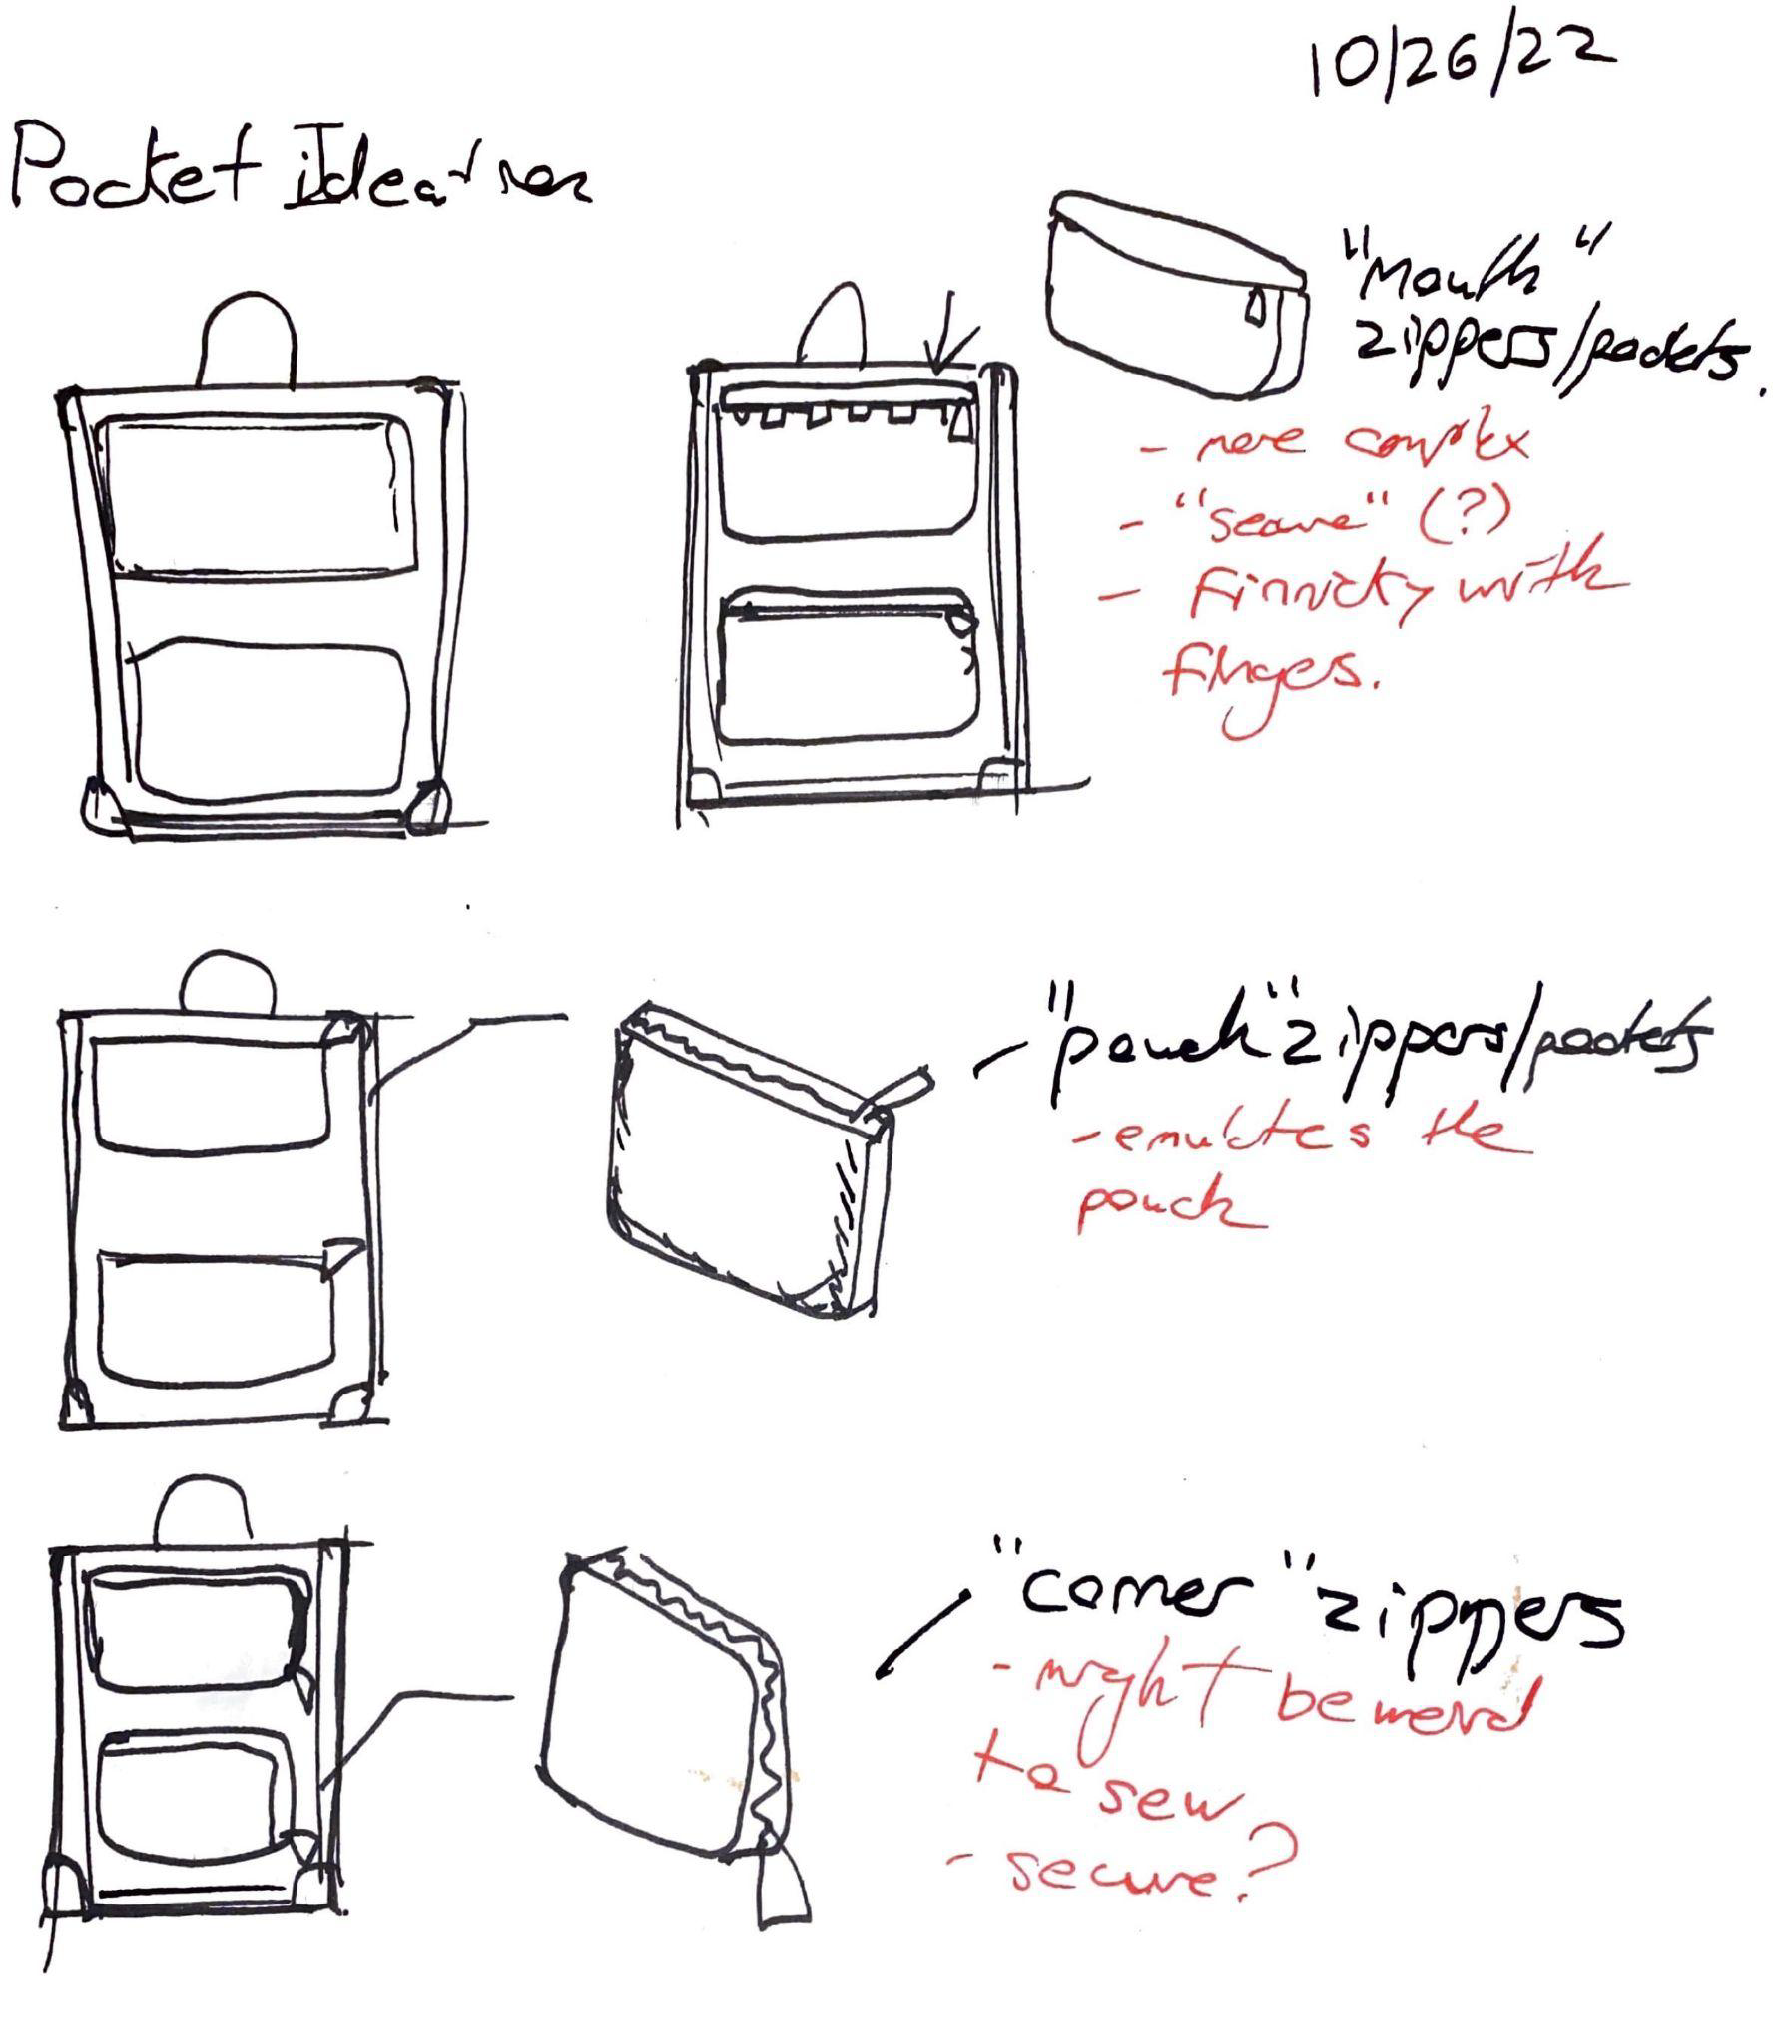 10/26/22
Pocket Ideation
"Mouth"
zippers/pockets.
- more complex
- "secure" (?)
- Finnicky with
fingers.
- "pouch" zippers/pockets
- emulates the
pouch
"corner" zippers
- might be weird
to sew
- secure?